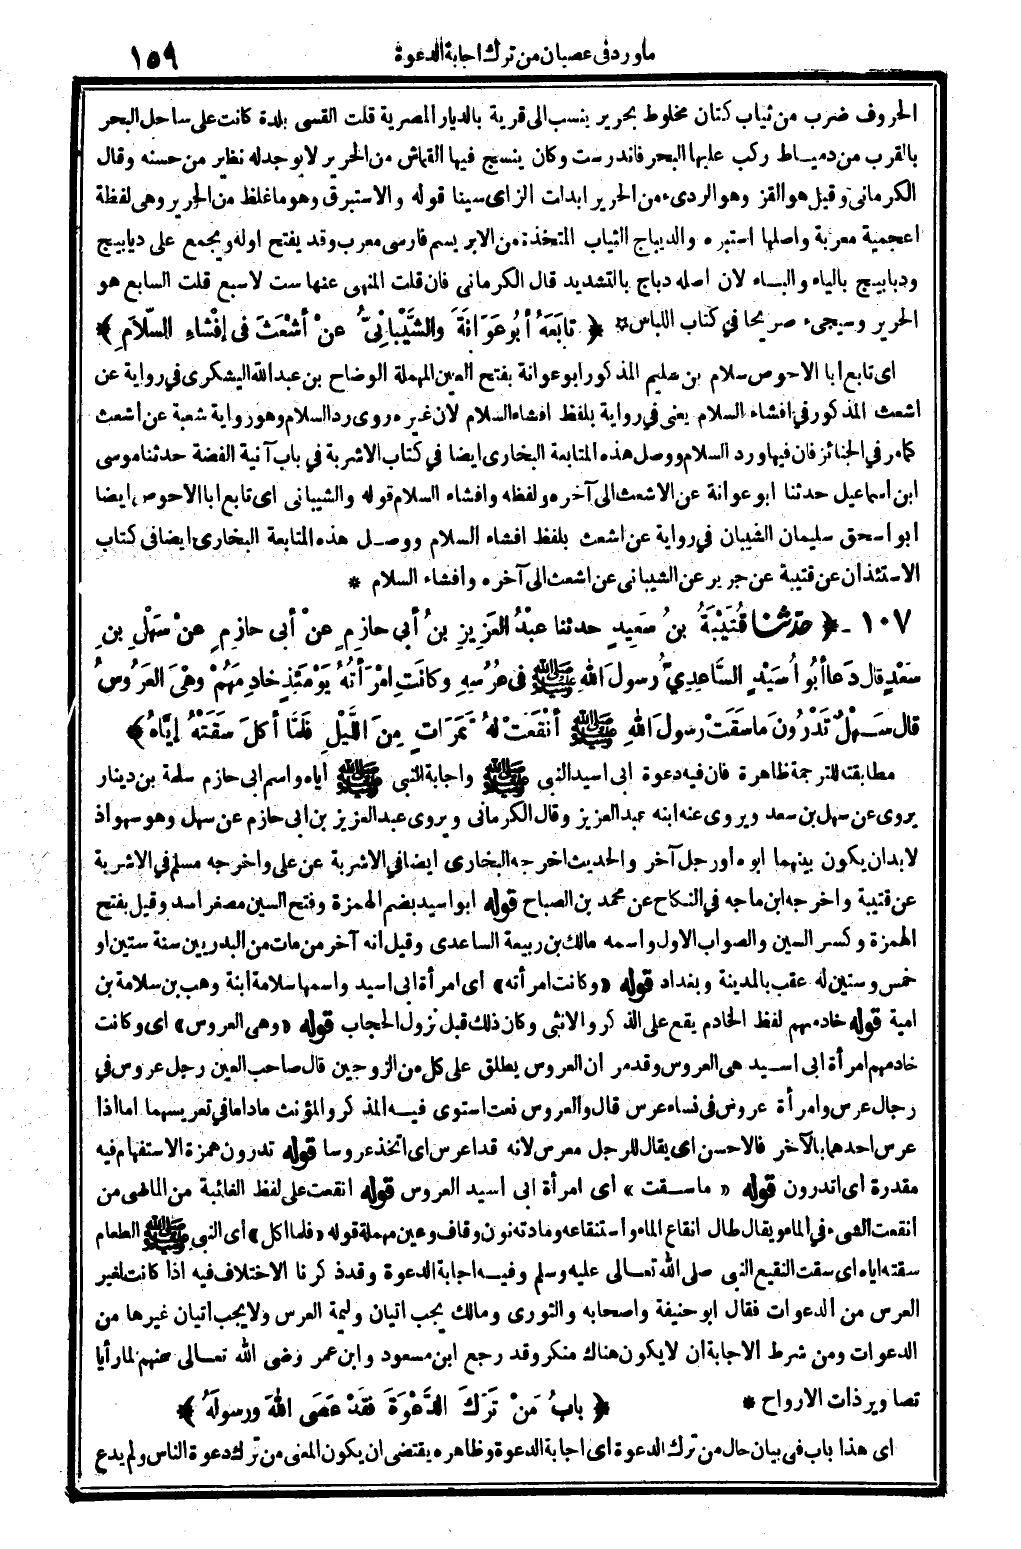 ما ورد فى عصيان من ترك اجابة الدعوة ١٥٩
الحروف ضرب من ثياب كتان مخلوط بحرير ينسب الى قرية بالديار المصرية قلت القسى بلدة كانت على ساحل البحر
بالقرب من دمياط ركب عليها البحر فاندرست وكان ينسج فيها القماش من الحرير لا يوجد له نظير من حسنه وقال
الكرمانى وقيل هو القز وهو الردىء من الحرير ابدلت الزاى سينا قوله والاستبرق وهو ما غلظ من الحرير وهى لفظة
اعجمية معربة واصلها استبره والديباج الثياب المتخذة من الابريسم فارسى معرب وقد يفتح اوله ويجمع على ديابيج
ودبابيج بالياء والباء لان اصله دباج بالتشديد قال الكرمانى فان قلت المنهى عنها ست لا سبع قلت السابع هو
الحرير وسيجىء صريحا فى كتاب اللباس * ﴿ تابَعَهُ أبُو عَوَانَةَ والشَّيْبانِيُّ عنْ أشْعَثَ فى إفْشاءِ السَّلاَمِ ﴾
اى تابع ابا الاحوص سلام بن سليم المذكور ابو عوانة بفتح العين المهملة الوضاح بن عبد الله اليشكرى فى رواية عن
اشعث المذكور فى افشاء السلام يعنى فى رواية بلفظ افشاء السلام لان غيره روى رد السلام وهو رواية شعبة عن اشعث
كما مر فى الجنائز فان فيها ورد السلام ووصل هذه المتابعة البخارى ايضا فى كتاب الاشربة فى باب آنية الفضة حدثنا موسى
ابن اسماعيل حدثنا ابو عوانة عن الاشعث الى آخره ولفظه وافشاء السلام قوله والشيبانى اى تابع ابا الاحوص ايضا
ابو اسحق سليمان الشيبان فى رواية عن اشعث بلفظ افشاء السلام ووصل هذه المتابعة البخارى ايضا فى كتاب
الاستئذان عن قتيبة عن جرير عن الشيبانى عن اشعث الى آخره وافشاء السلام *
١٠٧ - ﴿ حدّثنا قُتَيْبَةُ بنُ سَعِيدٍ حدثنا عبْدُ العَزِيزِ بنُ أبي حازِمٍ عنْ أبي حازِمٍ عنْ سَهْلِ بنِ
سَعْدٍ قال دَعا أبُو اُسَيْدٍ السَّاعِدِيُّ رسولَ اللهِ ﷺ فى عُرْسِهِ وكانَتِ امْرَأتُهُ يَوْمَئِذٍ خادِمَهُمْ وهْىَ العَرُوسُ
قال سَهْلٌ تَدْرُونَ ما سَقَتْ رسولَ اللهِ ﷺ أنْقَعَتْ لهُ تَمَرَاتٍ مِنَ اللَّيْلِ فَلَمَّا أكلَ سَقَتْهُ إيَّاهُ ﴾
مطابقته للترجمة ظاهرة فان فيه دعوة ابى اسيد النبى ﷺ واجابة النبى ﷺ اياه واسم ابى حازم سلمة بن دينار
يروى عن سهل بن سعد ويروى عنه ابنه عبد العزيز وقال الكرمانى ويروى عبد العزيز بن ابى حازم عن سهل وهو سهو اذ
لا بد ان يكون بينهما ابوه او رجل آخر والحديث اخرجه البخارى ايضا فى الاشربة عن على واخرجه مسلم فى الاشربة
عن قتيبة واخرجه ابن ماجه فى النكاح عن محمد بن الصباح قوله ابو اسيد بضم الهمزة وفتح السين مصغر اسد وقيل بفتح
الهمزة وكسر السين والصواب الاول واسمه مالك بن ربيعة الساعدى وقيل انه آخر من مات من البدريين سنة ستين او
خمس وستين له عقب بالمدينة وبغداد قوله «وكانت امرأته» اى امرأة ابى اسيد واسمها سلامة ابنة وهب بن سلامة بن
امية قوله خادمهم لفظ الخادم يقع على الذكر والانثى وكان ذلك قبل نزول الحجاب قوله «وهى العروس» اى وكانت
خادمهم امرأة ابى اسيد هى العروس وقد مر ان العروس يطلق على كل من الزوجين قال صاحب العين رجل عروس فى
رجال عرس وامرأة عروس فى نساء عرس قال والعروس نعت استوى فيه المذكر والمؤنث ما داما فى تعريسهما اما اذا
عرس احدهما بالآخر فالاحسن اى يقال للرجل معرس لانه قد اعرس اى اتخذ عروسا قوله تدرون همزة الاستفهام فيه
مقدرة اى اتدرون قوله « ما سقت » اى امرأة ابى اسيد العروس قوله انقعت على لفظ الغائبة من الماضى من
أنقعت الشىء فى الماء ويقال طال انقاع الماء واستنقاعه ومادته نون وقاف وعين مهملة قوله «فلما اكل» اى النبى ﷺ الطعام
سقته اياه اى سقت النقيع النبى صلى الله تعالى عليه وسلم وفيه اجابة الدعوة وقد ذكرنا الاختلاف فيه اذا كانت لغير
العرس من الدعوات فقال ابو حنيفة واصحابه والثورى ومالك يجب اتيان وليمة العرس ولا يجب اتيان غيرها من
الدعوات ومن شرط الاجابة ان لا يكون هناك منكر وقد رجع ابن مسعود وابن عمر رضى الله تعالى عنهم لما رأيا
تصاوير ذات الارواح * ﴿ بابُ مَنْ تَرَكَ الدَّعْوَةَ فَقَدْ عَصَى اللهَ ورسولَهُ ﴾
اى هذا باب فى بيان حال من ترك الدعوة اى اجابة الدعوة وظاهره يقتضى ان يكون المعنى من ترك دعوة الناس ولم يدع